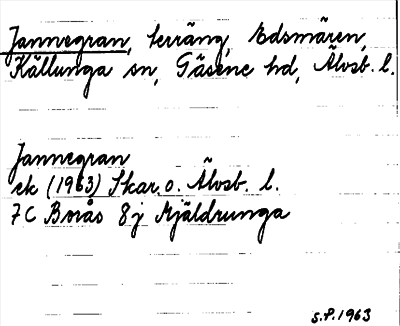 Jannegran, terräng, Edsmären,
Källunga sn, Gäsene hd, Älvsb. l.
Jannegran
ek (1963) Skar. o. Älvsb. l.
7C Borås 8j Mjäldrunga
S.P. 1963